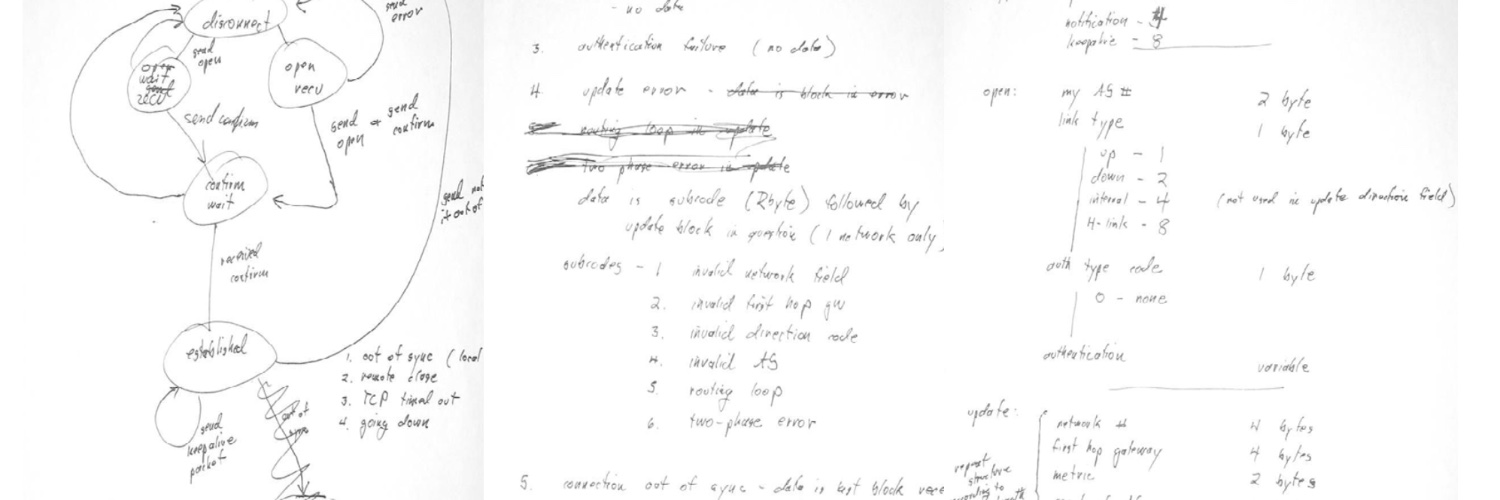 disconnect
send
error
send
open
open
wait
sent
recv
open
recv
send confirm
send or send
open confirm
confirm
wait
send not
it out of
received
confirm
established
1. out of sync (local
2. remote close
3. TCP timed out
4. going down
send
keepalive
packet
out of
sync
- no data
3. authentication failure (no data)
4. update error - data is block in error
5. routing loop in update
two phase error in update
data is subcode (2byte) followed by
update block in question (1 network only)
subcodes - 1 invalid network field
2. invalid first hop gw
3. invalid direction code
4. invalid AS
5. routing loop
6. two-phase error
5. connection out of sync - data is last block rece
notification - 4
keepalive - 8
open: my AS # 2 byte
link type 1 byte
up - 1
down - 2
internal - 4 (not used in update direction field)
H-link - 8
auth type code 1 byte
0 - none
authentication variable
update: network # 4 bytes
first hop gateway 4 bytes
metric 2 bytes
repeat
structure
according to